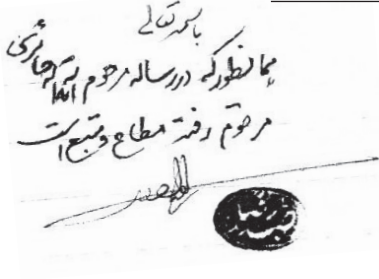 باسمه تعالی
همانطور که در رساله مرحوم آیة الله حائری
مرقوم رفته مطاع و متبع است